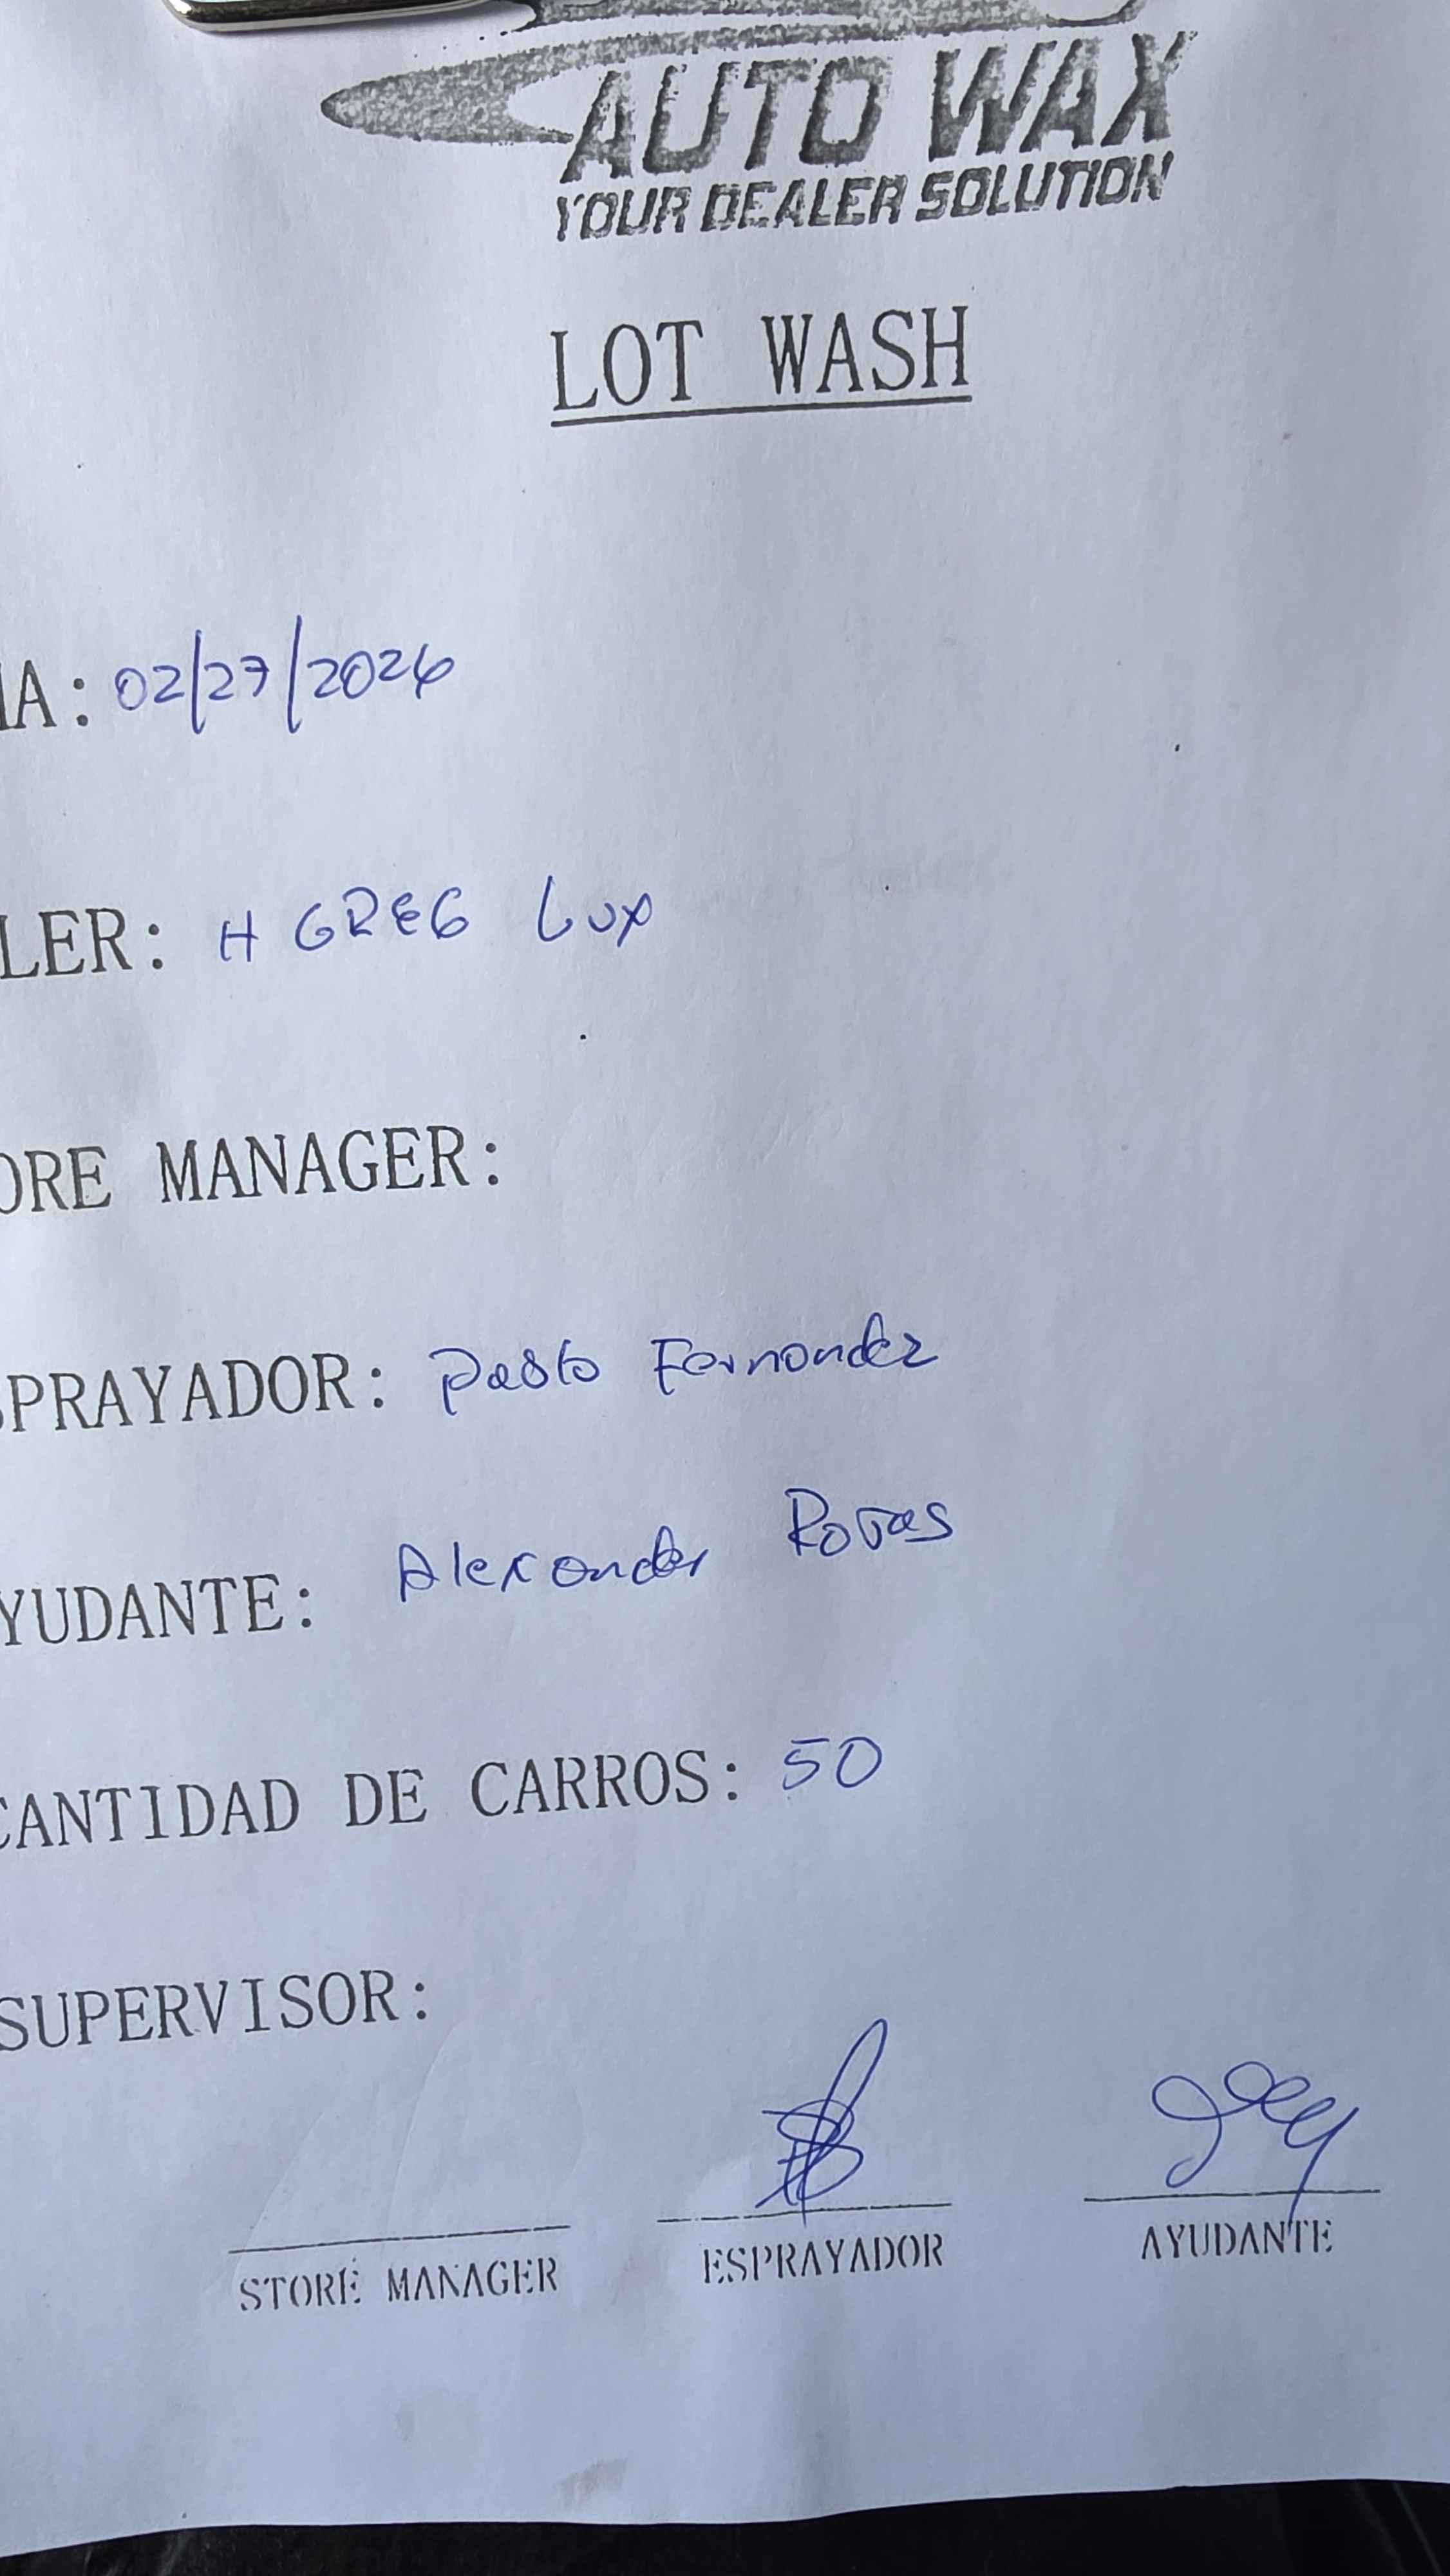 AUTO WAX
YOUR DEALER SOLUTION
LOT WASH
HA: 02/27/2026
LER: H GREG Lux
ORE MANAGER:
SPRAYADOR: Pablo Fernandez
YUDANTE: Alexander Rojas
CANTIDAD DE CARROS: 50
SUPERVISOR:
STORE MANAGER ESPRAYADOR AYUDANTE